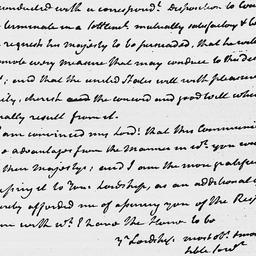 conducted with a correspondt. disposition to
terminate in a settlemt. mutually satisfactory &
request his majesty to be persuaded, that he will
promote every measure that may conduce to the
; and that the united States will with pleasure
cherish and the concord and good will which
result from it.
am convinced my Lord! that this Communi
advantages from the Manner in wh. you
their Majesty; and I am the more gratified
it to Your Lordship, as an additional
afforded me of assuring you of the Res
with wh. I have the Honor to be
yr Lordship's most obt. & most
ble servt